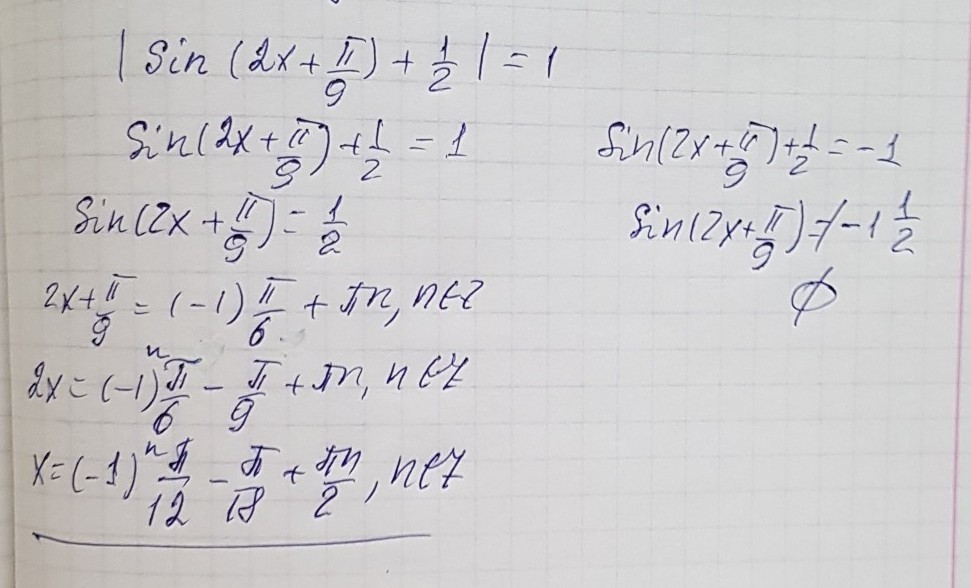 | Sin (2x + π/9) + 1/2 | = 1
Sin(2x + π/9) + 1/2 = 1
Sin(2x + π/9) = 1/2
2x + π/9 = (-1) π/6 + πn, n∈Z
2x = (-1)ⁿ π/6 - π/9 + πn, n∈Z
x = (-1)ⁿ π/12 - π/18 + πn/2, n∈Z
Sin(2x + π/9) + 1/2 = -1
Sin(2x + π/9) ≠ -1 1/2
∅